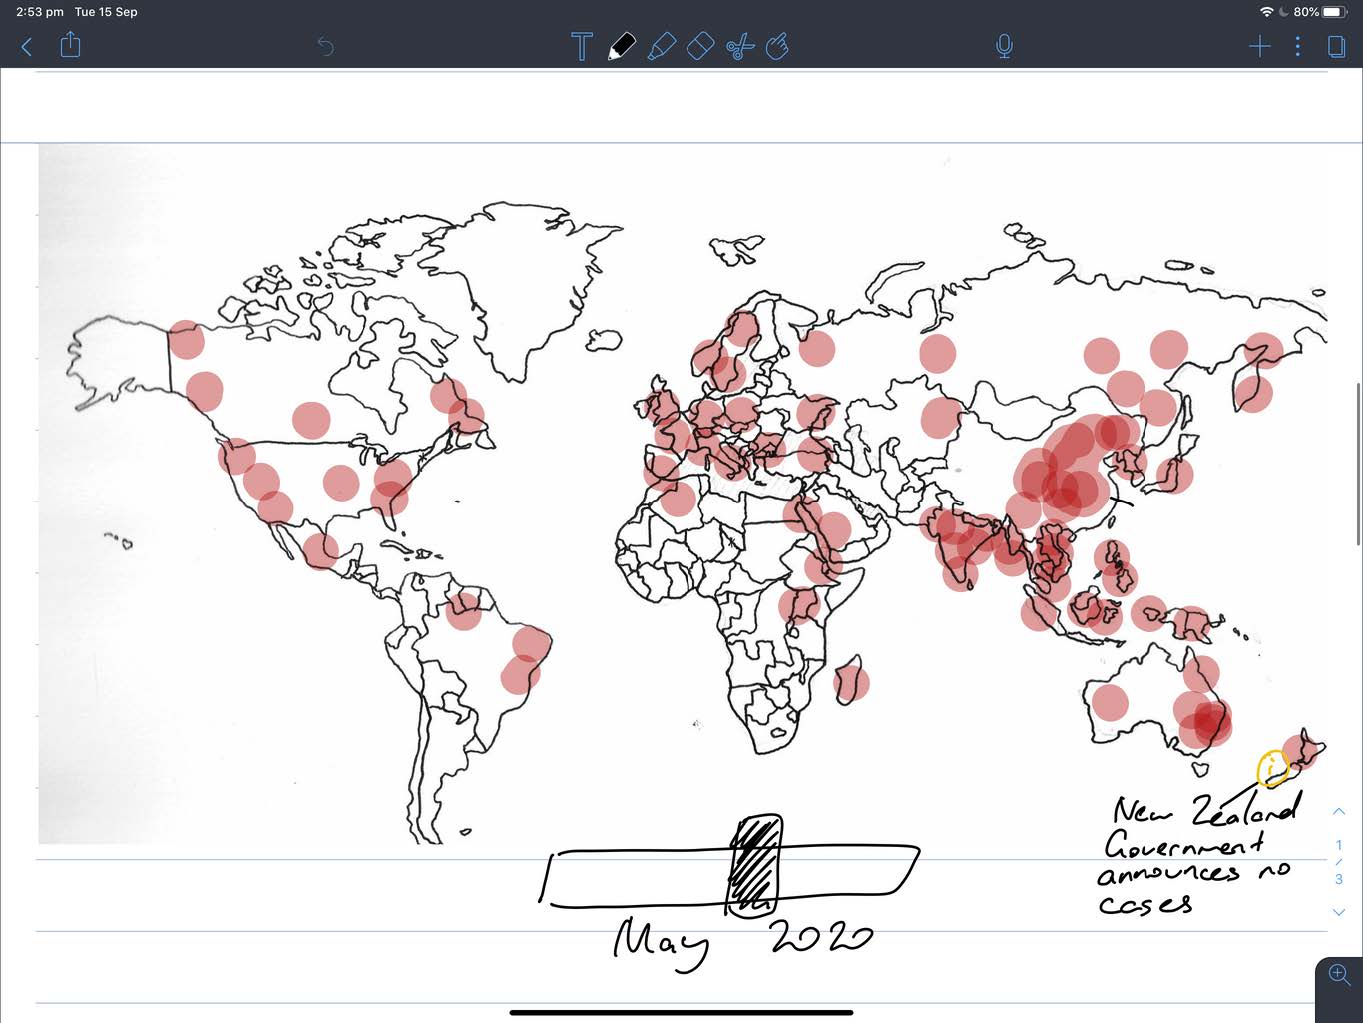 2:53 pm Tue 15 Sep
80%
T
i
New Zealand
Government
announces no
cases
1
/
3
May 2020